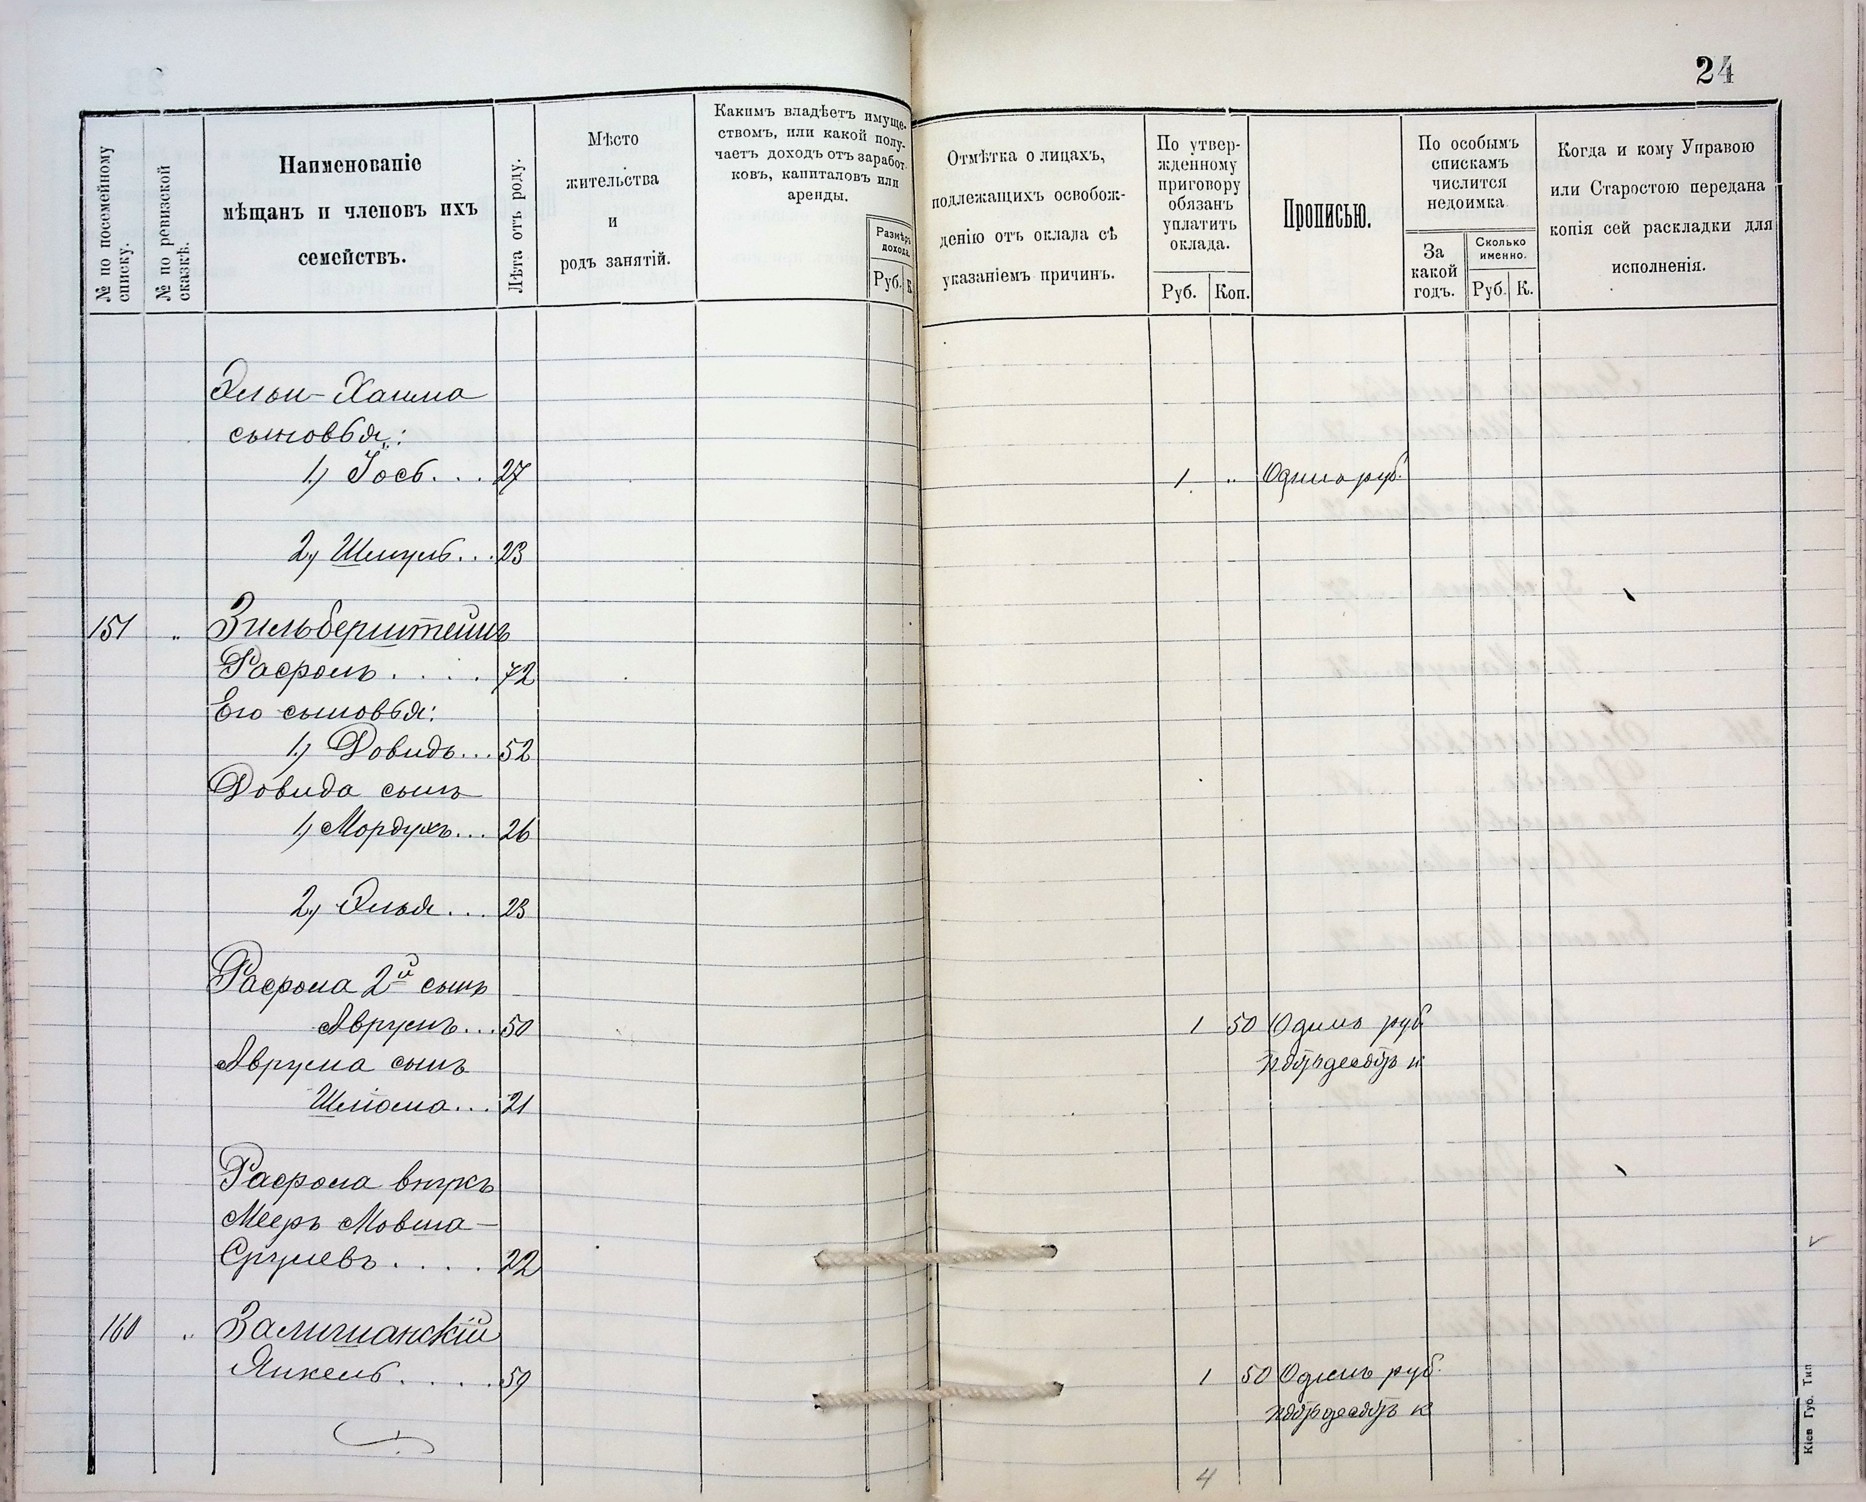 24
№ по посемейному списку.
№ по ревизской сказкѣ.
Наименованіе
мѣщанъ и членовъ ихъ
семействъ.
Лѣта отъ роду.
Мѣсто
жительства
и
родъ занятій.
Какимъ владѣетъ имуще-
ствомъ, или какой полу-
чаетъ доходъ отъ заработ-
ковъ, капиталовъ или
аренды.
Размѣръ
дохода.
Руб. К.
Отмѣтка о лицахъ,
подлежащихъ освобож-
денію отъ оклада съ
указаніемъ причинъ.
По утвер-
жденному
приговору
обязанъ
уплатить
оклада.
Руб. Коп.
Прописью.
По особымъ
спискамъ
числится
недоимка
За
какой
годъ.
Сколько
именно.
Руб. К.
Когда и кому Управою
или Старостою передана
копія сей раскладки для
исполненія.
Эльи-Хаима
сыновья:
1) Іось... 27 1 " Одинъ руб.
2) Шмуль... 23
151 " Зильберштейнъ
Расромъ.... 72
Его сыновья:
1) Довидъ... 52
Довида сынъ
1) Мордухъ... 26
2) Элья... 23
Расрома 2й сынъ
Аврумъ... 50 1 50 Одинъ руб
пятьдесятъ к
Аврума сынъ
Шліома... 21
Расрома внукъ
Мееръ Мовша-
Срулевъ.... 22
160 " Залишанскій
Янкель.... 59 1 50 Одинъ руб.
пятьдесятъ к
4
Кіев Губ. Тип